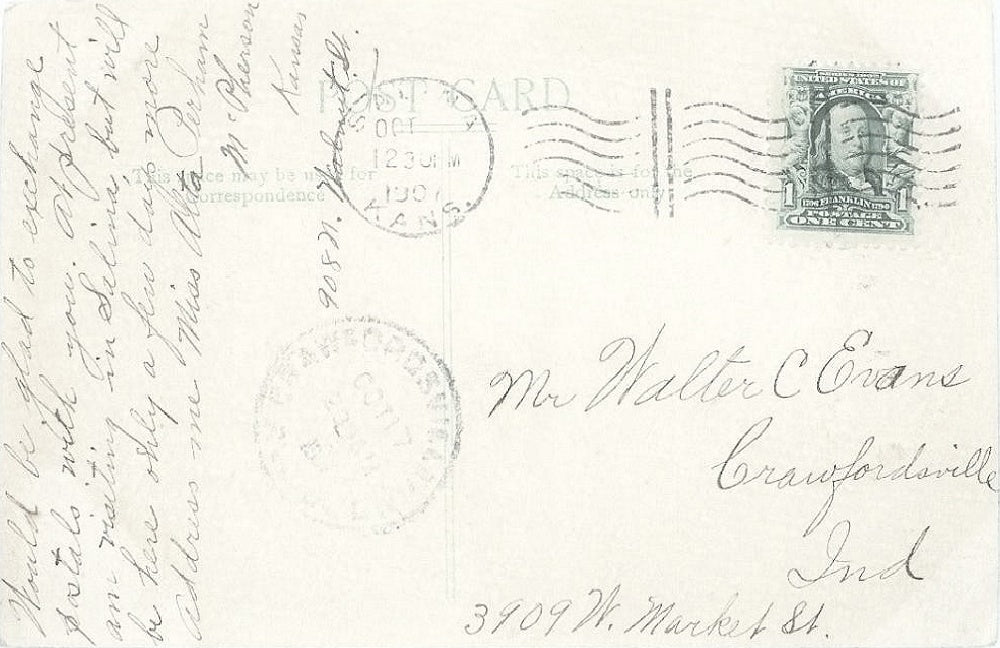 Would be glad to exchange
postals with you. At present
am visiting in Selina, but will
be here only a few days more
Address me Miss Alta Perham
McPherson
Kansas
908 N. Walnut St.
POST CARD
This space may be used for
Correspondence
This space is for the
Address only
OCT
1230PM
1907
KANS.
SERIES 1902
UNITED STATES OF
AMERICA
1 1
FRANKLIN
POSTAGE
ONE CENT
CRAWFORDSVILLE
OCT 17
Mr Walter C Evans
Crawfordsville
Ind
3909 W. Market St.